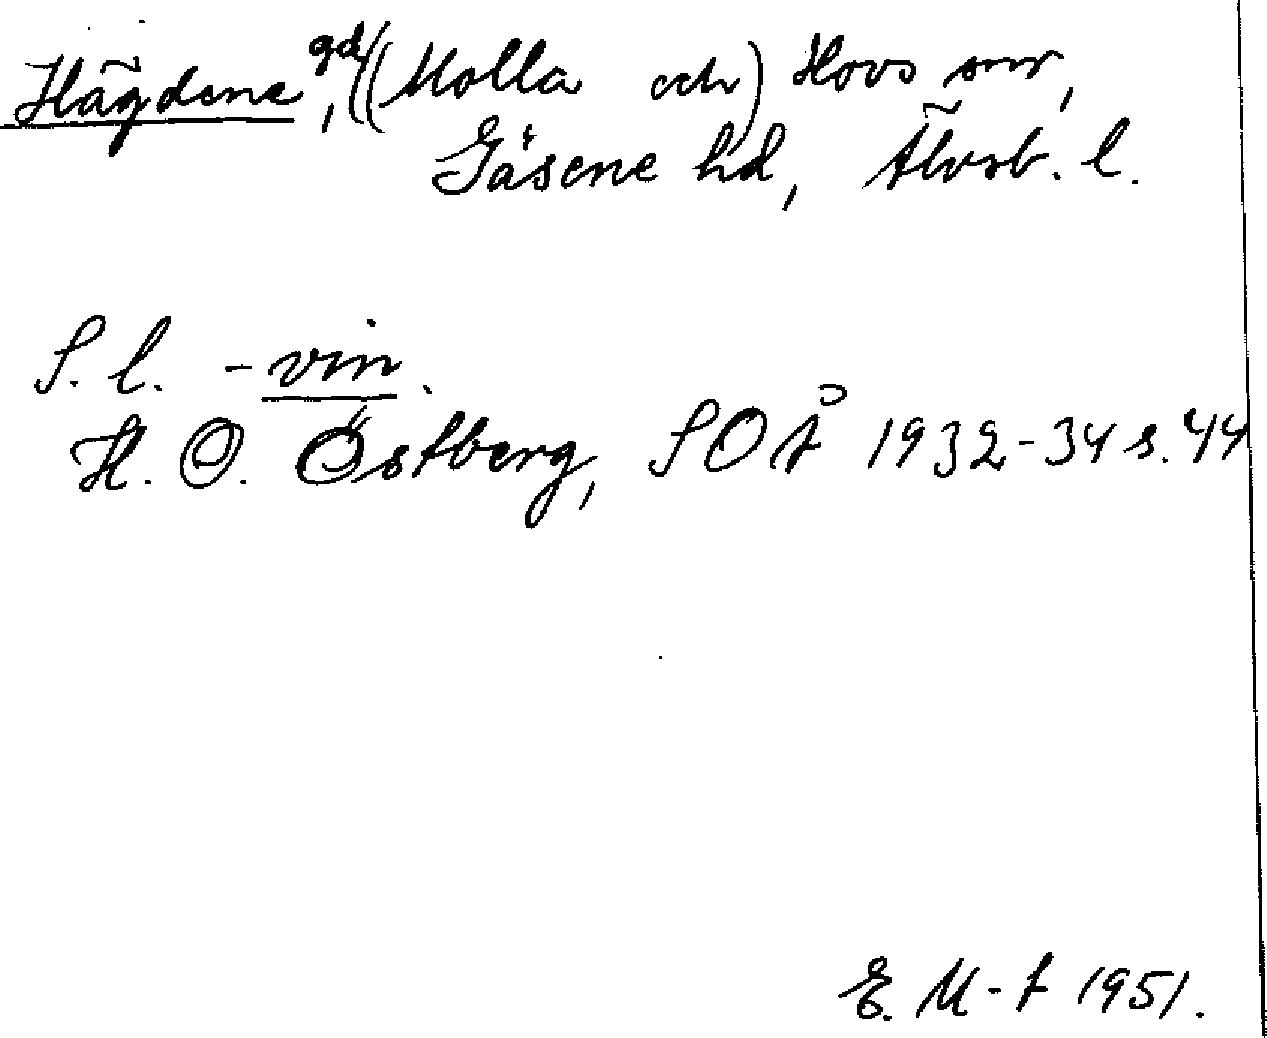 Hägdene, gd, ((Molla och) Hovs snr,
Gäsene hd, Älvsb. l.
S. l. -vin.
H. O. Östberg, SOÅ 1932-34 s. 44
E. M-t 1951.